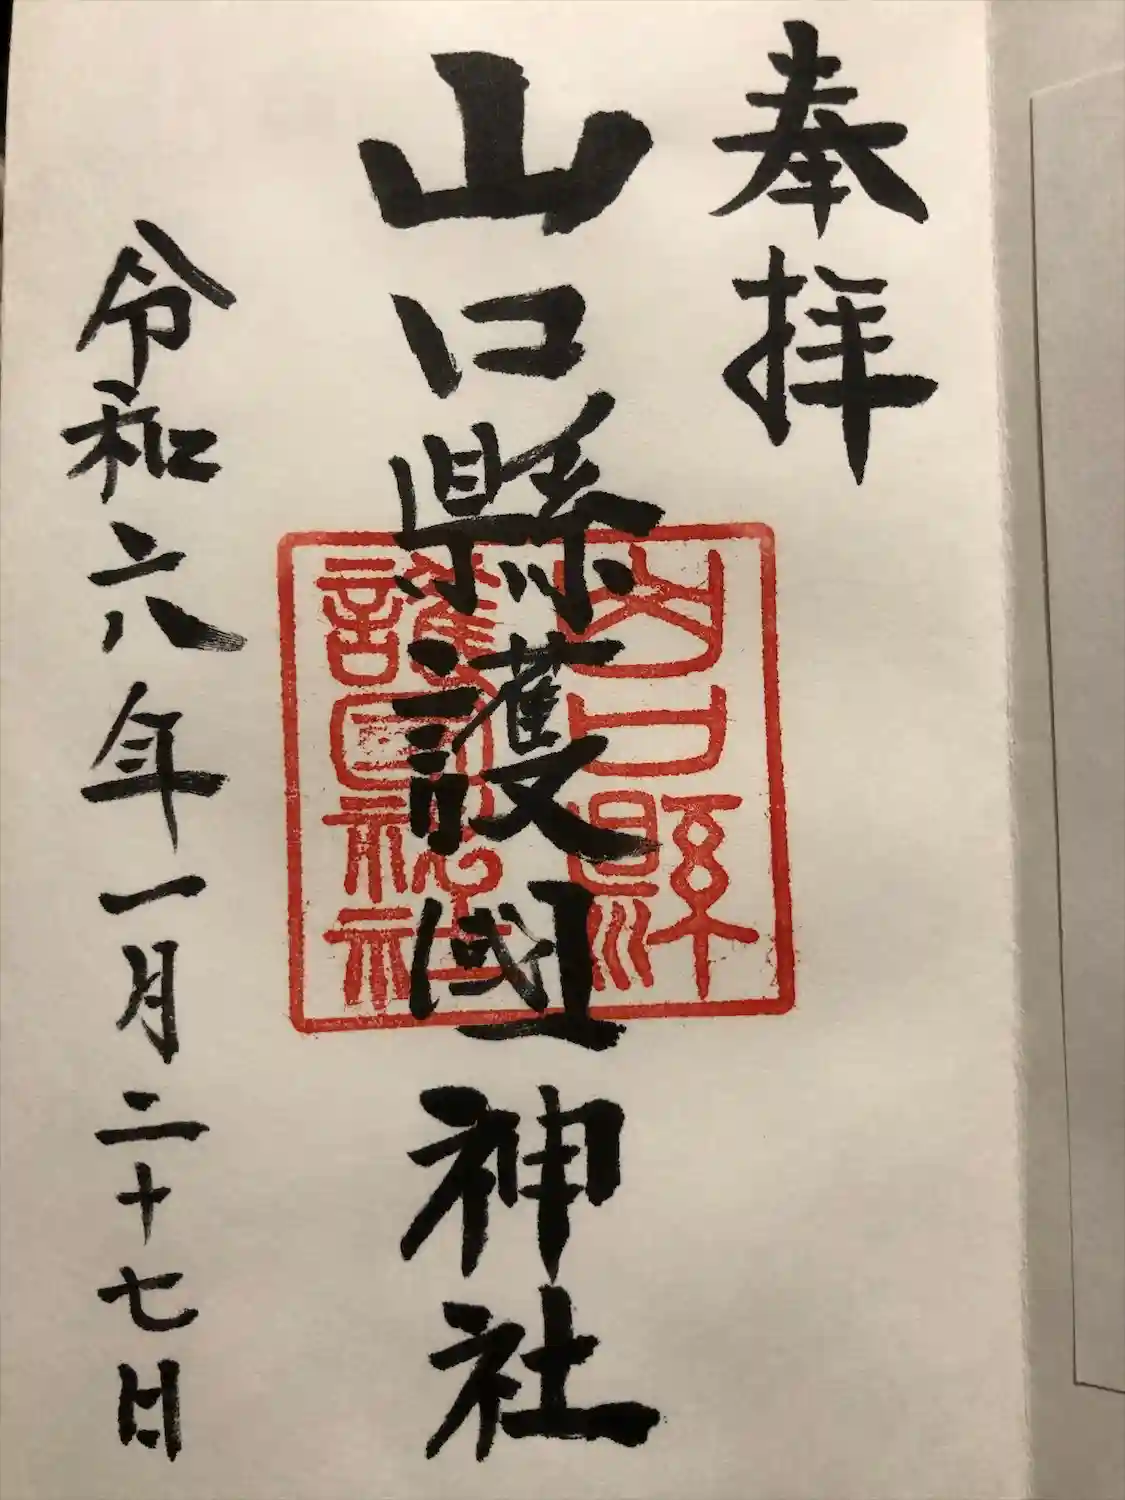 奉拝
山口縣護國神社
山口縣
護國神社
令和六年一月二十七日